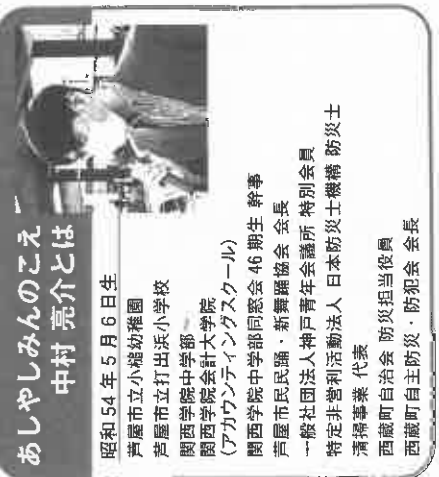 あしやしみんのこえ
中村 亮介とは
昭和54年5月6日生
芦屋市立小槌幼稚園
芦屋市立打出浜小学校
関西学院中学部
関西学院会計大学院
（アカウンティングスクール）
関西学院中学部同窓会46期生 幹事
芦屋市民民踊・新舞踊協会 会長
一般社団法人神戸青年会議所 特別会員
特定非営利活動法人 日本防災士機構 防災士
清掃事業 代表
西蔵町自治会 防災担当役員
西蔵町自主防災・防犯会 会長